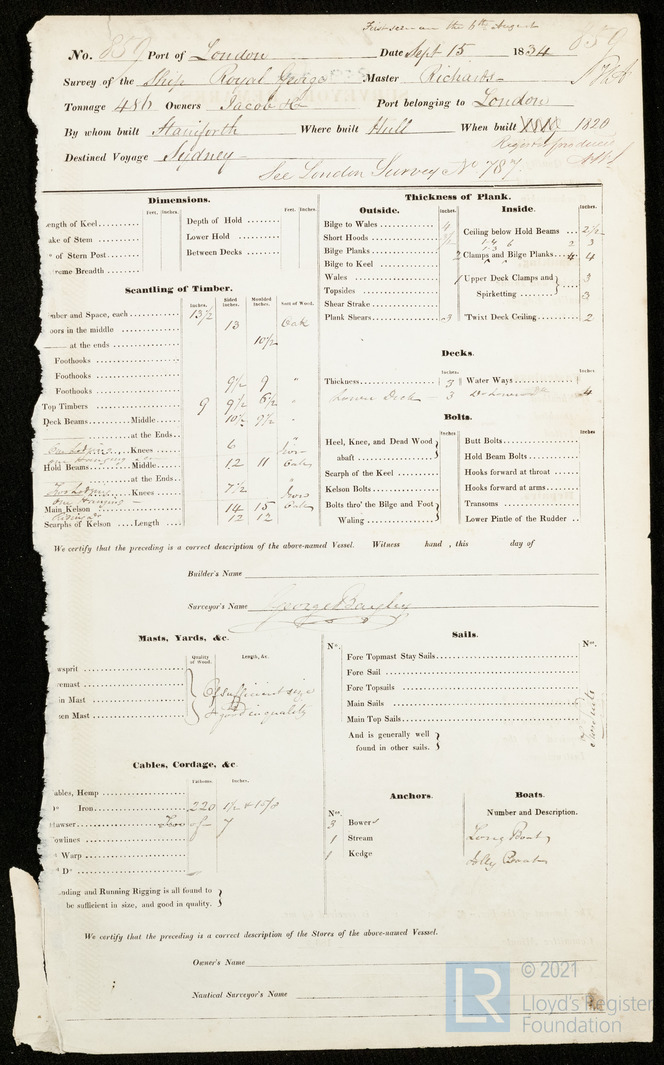 First seen on the 6th August
No. 859 Port of London Date Sept 15 1834 859
Survey of the Ship Royal George Master Richards
Tonnage 486 Owners Jacob & Co Port belonging to London
By whom built Staniforth Where built Hull When built 1820
Register produced
Destined Voyage Sydney
See London Survey No 787
Dimensions.
Feet. Inches.
Feet. Inches.
ength of Keel
Depth of Hold
ake of Stem
Lower Hold
" of Stern Post
Between Decks
reme Breadth
Scantling of Timber.
Inches. Sided Inches. Moulded Inches. Sort of Wood.
mber and Space, each 13½
oors in the middle 13 Oak
at the ends 10½
Foothooks
Foothooks
Foothooks 9½ 9 "
Top Timbers 9 9½ 6½ "
Deck Beams Middle 10½ 9½ "
at the Ends
Knees 6 Iron
one Hanging
Hold Beams Middle 12 11 Oak
at the Ends
Two Lodging Knees 7½ Iron
One Hanging
Main Kelson 14 15 Oak
Scarphs of Kelson Length 12 12
Thickness of Plank.
Outside.
Inches.
Bilge to Wales 4
Short Hoods
Bilge Planks
Bilge to Keel
Wales
Topsides
Shear Strake
Plank Shears 3
Inside.
Inches.
Ceiling below Hold Beams 2½
3
Clamps and Bilge Planks 4 4
Upper Deck Clamps and 3
Spirketting 3
'Twixt Deck Ceiling 2
Decks.
Inches.
Inches.
Thickness 3 Water Ways
Lower Deck 3 Do Lower Do 4
Bolts.
Inches
Inches.
Heel, Knee, and Dead Wood
abaft
Scarph of the Keel
Kelson Bolts
Bolts thro' the Bilge and Foot
Waling
Butt Bolts
Hold Beam Bolts
Hooks forward at throat
Hooks forward at arms
Transoms
Lower Pintle of the Rudder
We certify that the preceding is a correct description of the above-named Vessel. Witness hand , this day of
Builder's Name
Surveyor's Name George Bayley
Masts, Yards, &c.
Quality of Wood. Length, &c.
wsprit
remast
in Mast
zen Mast
Of sufficient size
& good in quality
Sails.
No.
No.
Fore Topmast Stay Sails
Fore Sail
Fore Topsails
Main Sails
Main Top Sails
And is generally well
found in other sails.
Two suits
Cables, Cordage, &c
Fathoms. Inches.
ables, Hemp
Do Iron 220 1½ & 1⅝
awser Two of 7
owlines
Warp
Do
nding and Running Rigging is all found to
be sufficient in size, and good in quality.
Anchors.
No.
3 Bowers
1 Stream
1 Kedge
Boats.
Number and Description.
Long Boat
Jolly Boat
We certify that the preceding is a correct description of the Stores of the above-named Vessel.
Owner's Name
Nautical Surveyor's Name
LR
© 2021
Lloyd's Register
Foundation